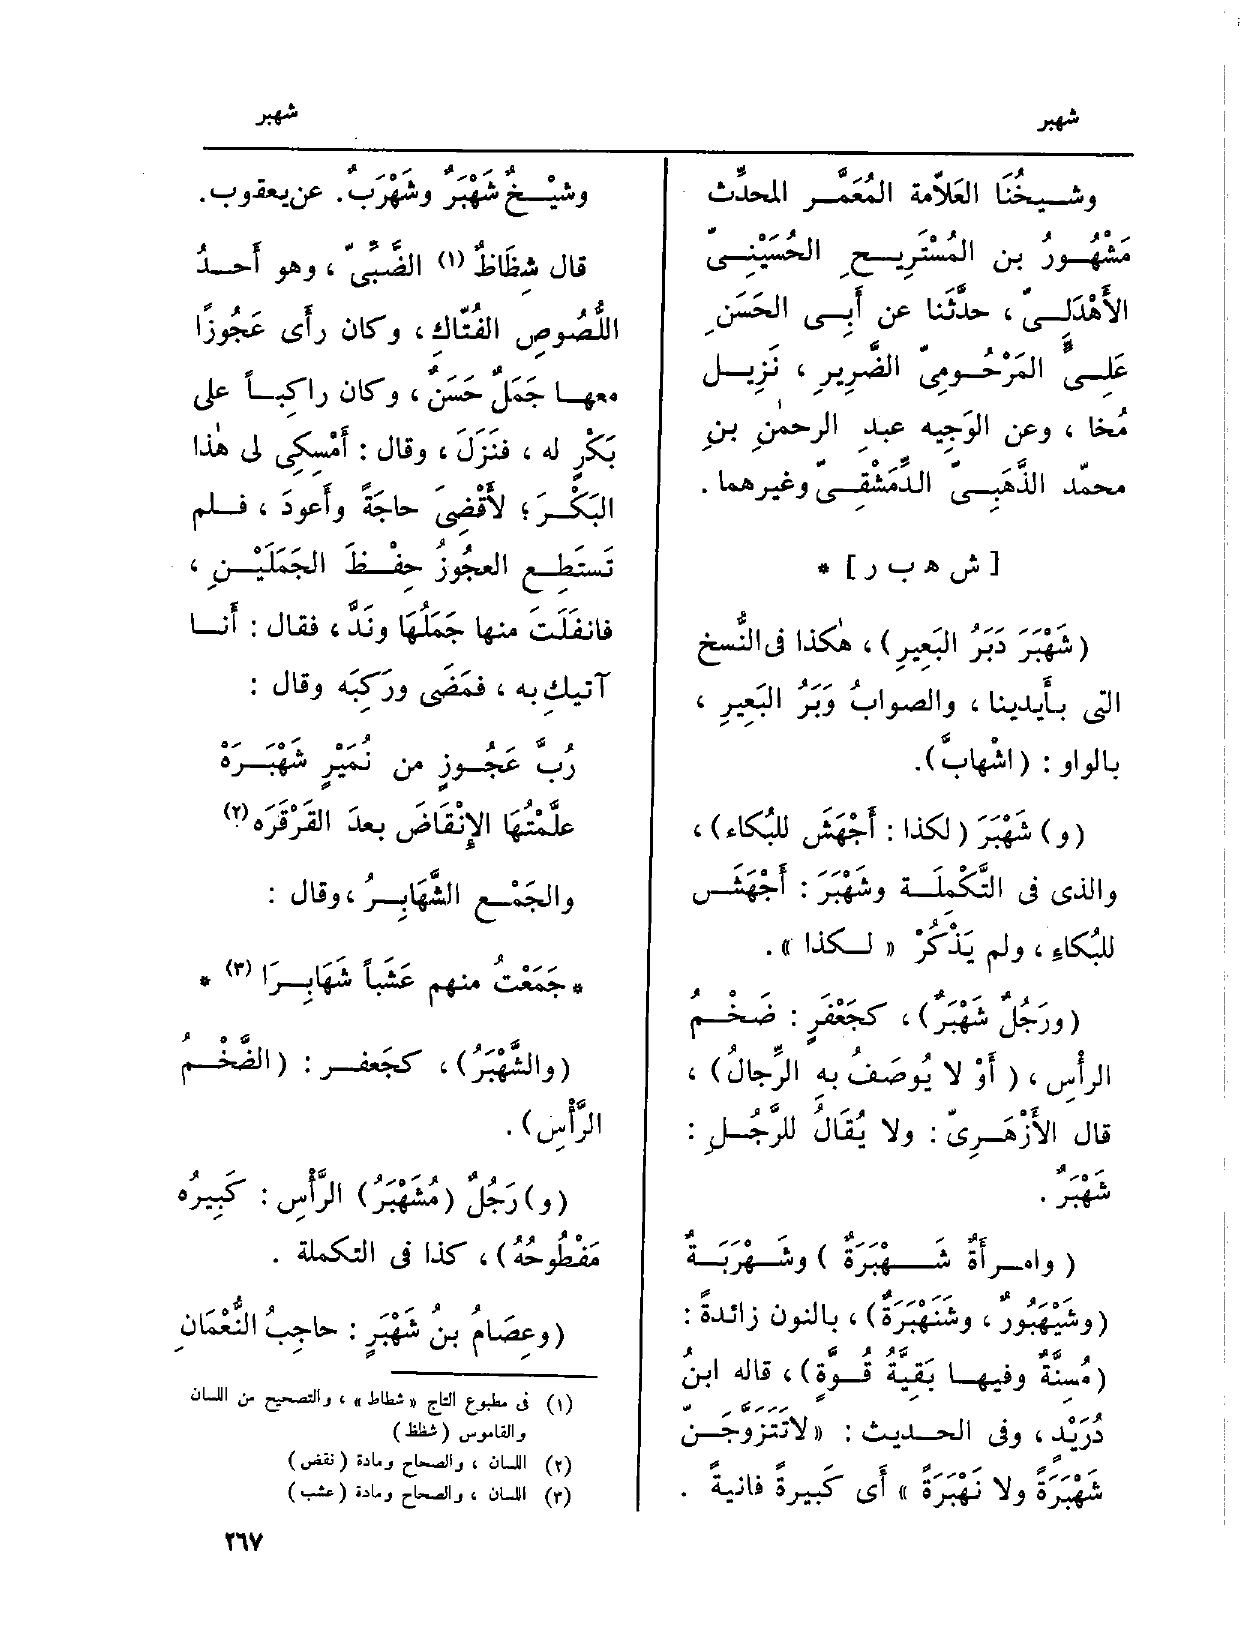 شهبر
شهبر
وشيخُنَا العَلاّمة المُعَمَّر المحدِّث
مَشْهُورُ بن المُسْتَرِيحِ الحُسَيْنِىّ
الأَهْدَلِىّ ، حدَّثَنا عن أَبِى الحَسَنِ
عَلِىٍّ المَرْحُومِىّ الضَّرِيرِ ، نَزِيلِ
مُخا ، وعن الوَجِيه عبدِ الرحمٰنِ بنِ
محمّد الذَّهَبِىّ الدِّمَشْقِىّ وغيرهما .
[ ش ه ب ر ] *
(شَهْبَرَ دَبَرُ البَعِيرِ) ، هٰكذا فى النُّسخِ
التى بأَيدينا ، والصوابُ وَبَرُ البَعِيرِ ،
بالواو : (اشْهابَّ).
(و) شَهْبَرَ (لكذا : أَجْهَشَ للبُكاء) ،
والذى فى التَّكْمِلَة وشَهْبَرَ : أَجْهَشَ
للبُكاءِ ، ولم يَذْكُرْ « لكذا » .
(ورَجُلٌ شَهْبَرٌ) ، كجَعْفَرٍ : ضَخْمُ
الرأْسِ ، ( أَوْ لا يُوصَفُ به الرِّجالُ ) ،
قال الأَزْهَرِىّ : ولا يُقَالُ للرَّجُلِ :
شَهْبَرٌ .
( وامرأَةٌ شَهْبَرَةٌ ) وشَهْرَبَةٌ
(وشَيْهَبُورٌ ، وشَنَهْبَرَةٌ) ، بالنون زائدةً :
(مُسِنَّةٌ وفيها بَقِيَّةُ قُوَّةٍ) ، قاله ابنُ
دُرَيْدٍ ، وفى الحديث : « لاتَتَزَوَّجَنّ
شَهْبَرَةً ولا نَهْبَرَةً » أَى كَبِيرةً فانيةً .
وشَيْخٌ شَهْبَرٌ وشَهْرَبٌ . عن يعقوب .
قال شِظَاظٌ (١) الضَّبِّىّ ، وهو أَحدُ
اللُّصُوصِ الفُتّاكِ ، وكان رأَى عَجُوزًا
معها جَمَلٌ حَسَنٌ ، وكان راكباً على
بَكْرٍ له ، فنَزَلَ ، وقال : أَمْسِكِى لى هٰذا
البَكْرَ ؛ لأَقْضِىَ حاجَةً وأَعودَ ، فلم
تَستَطِع العجُوزُ حِفْظَ الجَمَلَيْنِ ،
فانفَلَتَ منها جَمَلُهَا ونَدَّ ، فقال : أَنا
آتيك به ، فمَضَى ورَكِبَه وقال :
رُبَّ عَجُوزٍ من نُمَيْرٍ شَهْبَرَهْ
علَّمْتُهَا الإِنْقَاضَ بعدَ القَرْقَرَه (٢)
والجَمْع الشَّهَابِرُ ، وقال :
* جَمَعْتُ منهم عَشَباً شَهَابِرَا (٣) *
(والشَّهْبَرُ) ، كجَعفر : (الضَّخْمُ
الرَّأْسِ) .
(و) رَجُلٌ (مُشَهْبَرُ) الرَّأْسِ : كَبِيرُه
مَفْطُوحُهُ) ، كذا فى التكملة .
(وعِصَامُ بنُ شَهْبَرٍ : حاجِبُ النُّعْمَانِ
(١) فى مطبوع التاج « شطاط » ، والتصحيح من اللسان
والقاموس (شظظ)
(٢) اللسان ، والصحاح ومادة (نقض)
(٣) اللسان ، والصحاح ومادة (عشب)
٢٦٧